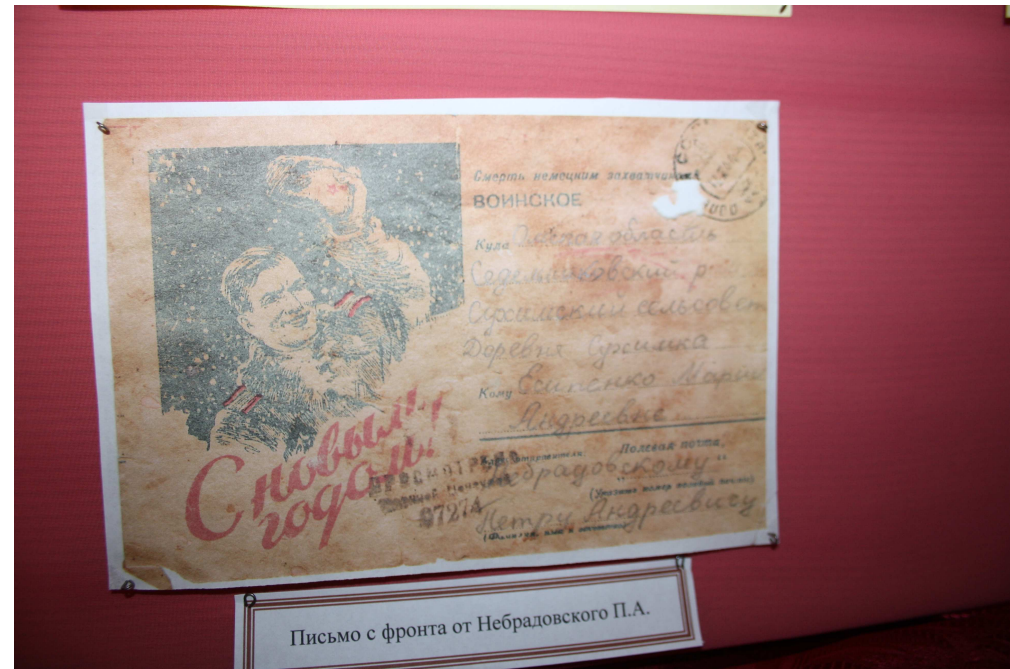 Смерть немецким захватчикам
ВОИНСКОЕ
Куда Омская область
Седельниковский р
Сухимский сельсовет
Деревня Сухимка
Кому
Андреевне
Полевая почта
Небрадовскому
(Укажите номер полевой почты)
Петру Андреевичу
С новым
годом!
ПРОСМОТРЕНО
Военной Цензурой
07274
Письмо с фронта от Небрадовского П.А.